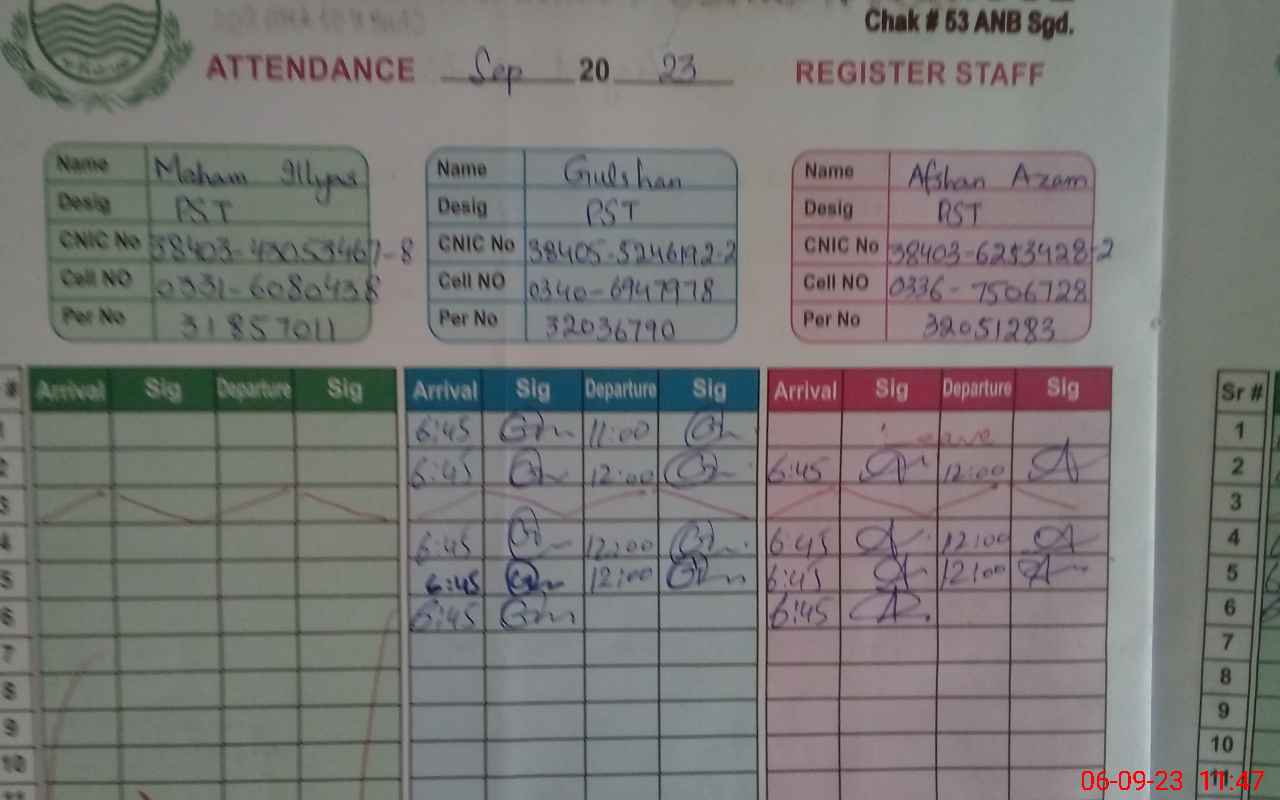 Chak # 53 ANB Sgd.
ATTENDANCE Sep 20 23 REGISTER STAFF
Name Maham Illyas
Desig PST
CNIC No 38403-43053467-8
Cell NO 0331-6080438
Per No 31857011
Name Gulshan
Desig PST
CNIC No 38405-5246192-2
Cell NO 0340-6947978
Per No 32036790
Name Afshan Azam
Desig PST
CNIC No 38403-6253428-2
Cell NO 0336-7506728
Per No 32051283
# Arrival Sig Departure Sig Arrival Sig Departure Sig Arrival Sig Departure Sig Sr #
1 6:45 11:00 Leave 1
2 6:45 12:00 6:45 12:00 2
3 3
4 6:45 12:00 6:45 12:00 4
5 6:45 12:00 6:45 12:00 5
6 6:45 6:45 6
7 7
8 8
9 9
10 10
11 11
06-09-23 11:47